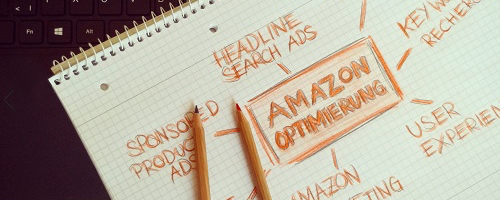 HEADLINE
SEARCH ADS
KEYW
RECHER
AMAZON
OPTIMIERUNG
SPONSORED
PRODUC
ADS
USER
EXPERIEN
AMAZON
ETING
Fn
Alt